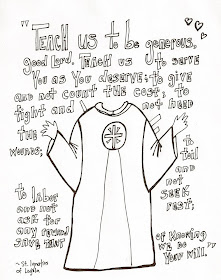 "Teach us to be generous,
good Lord, Teach us to serve
You as You deserve; to give
and not count the cost; to
fight and not heed
the
wounds;
to
toil
and
not
seek
rest;
to labor
and not
ask for
any reward
save that
of knowing
we do
Your will."
~St. Ignatius
of Loyola